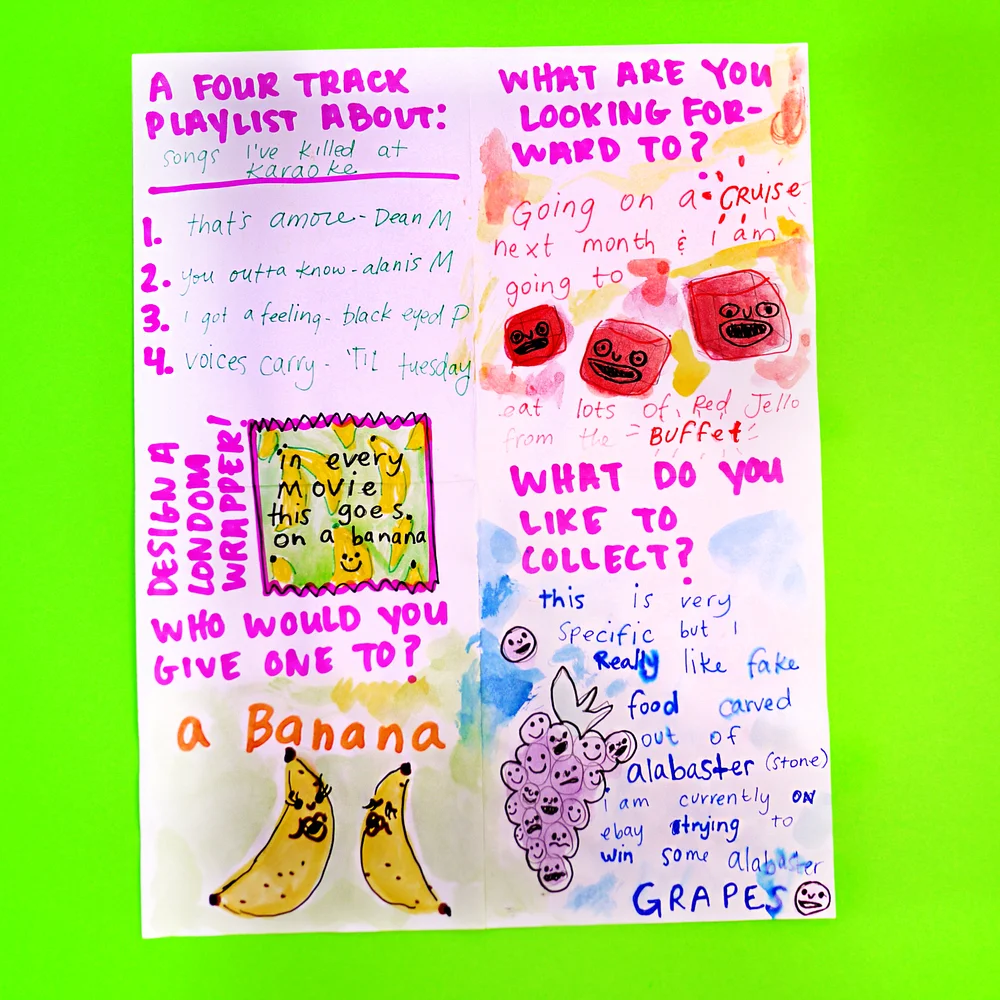 A FOUR TRACK
PLAYLIST ABOUT:
songs I've killed at
karaoke
1. that's amore - Dean M
2. you outta know - alanis M
3. i got a feeling - black eyed P
4. voices carry - 'TIL tuesday
DESIGN A
LONDOM
WRAPPER!
in every
movie
this goes.
on a banana
WHO WOULD YOU
GIVE ONE TO?
a Banana
WHAT ARE YOU
LOOKING FOR-
WARD TO?
Going on a CRUISE
next month & I am
going to
eat lots of Red Jello
from the BUFFet
WHAT DO YOU
LIKE TO
COLLECT?
this is very
Specific but I
Really like fake
food carved
out of
alabaster (stone)
i am currently ON
ebay trying to
win some alabaster
GRAPES